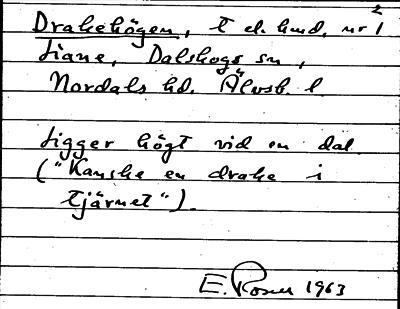 Drakehögen, t d. hmd, nr 1 2
Liane, Dalskogs sn,
Nordals hd. Älvsb. l.
Ligger högt vid en dal.
("Kanske en drake i
tjärnet").
E. Rosell 1963